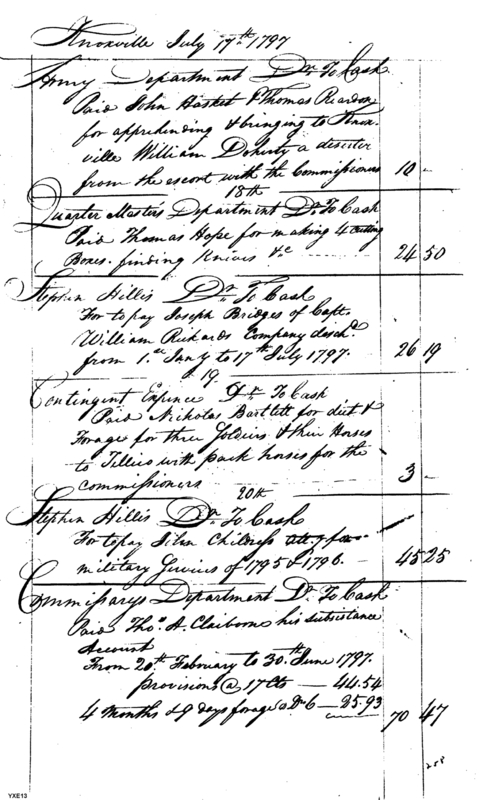 Knoxville July 17th 1797
Army Department Dr. To Cash
Paid John Hasket & Thomas Reardon
for apprehending & bringing to Knox-
ville William Doherty a deserter
from the escort with the Commissioners 10 -
18th
Quarter Masters Department Dr. To Cash
Paid Thomas Hope for making 4 cutting
Boxes. finding Knives &c 24 50
Stephen Hillis Dr. To Cash
For to pay Joseph Bridges of Capt.
William Rickards Company
from 1st Jany to 17th July 1797. 26 19
19.
Contingent Expence Dr. To Cash
Paid Nicholas Bartlett for diet &
Forage for three Soldiers & their Horses
to Tellico with pack horses for the
commissioners 3 -
20th
Stephen Hillis Dr. To Cash
For to pay Childress
military Services of 1795 & 1796. - 45 25
Commissarys Department Dr. To Cash
Paid Thos. A. Claiborne his subsistance
Account
From 20th. February to 30th June 1797.
provisions @ 17 Cts - 44.54
4 Months & 9 days forage @ Drs 6 - 25.93 70 47
YXE13